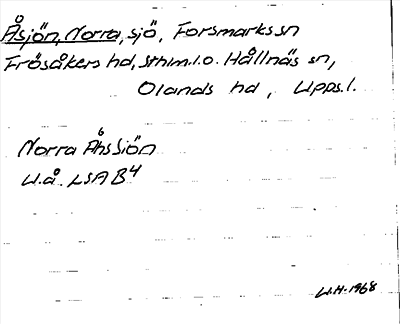 Åsjön, Norra, sjö, Forsmarks sn
Frösåkers hd, Sthlm.l.o. Hållnäs sn,
Olands hd, Upps.l.
Norra Åhssiön
U.å. LSA B4
U.H. 1968